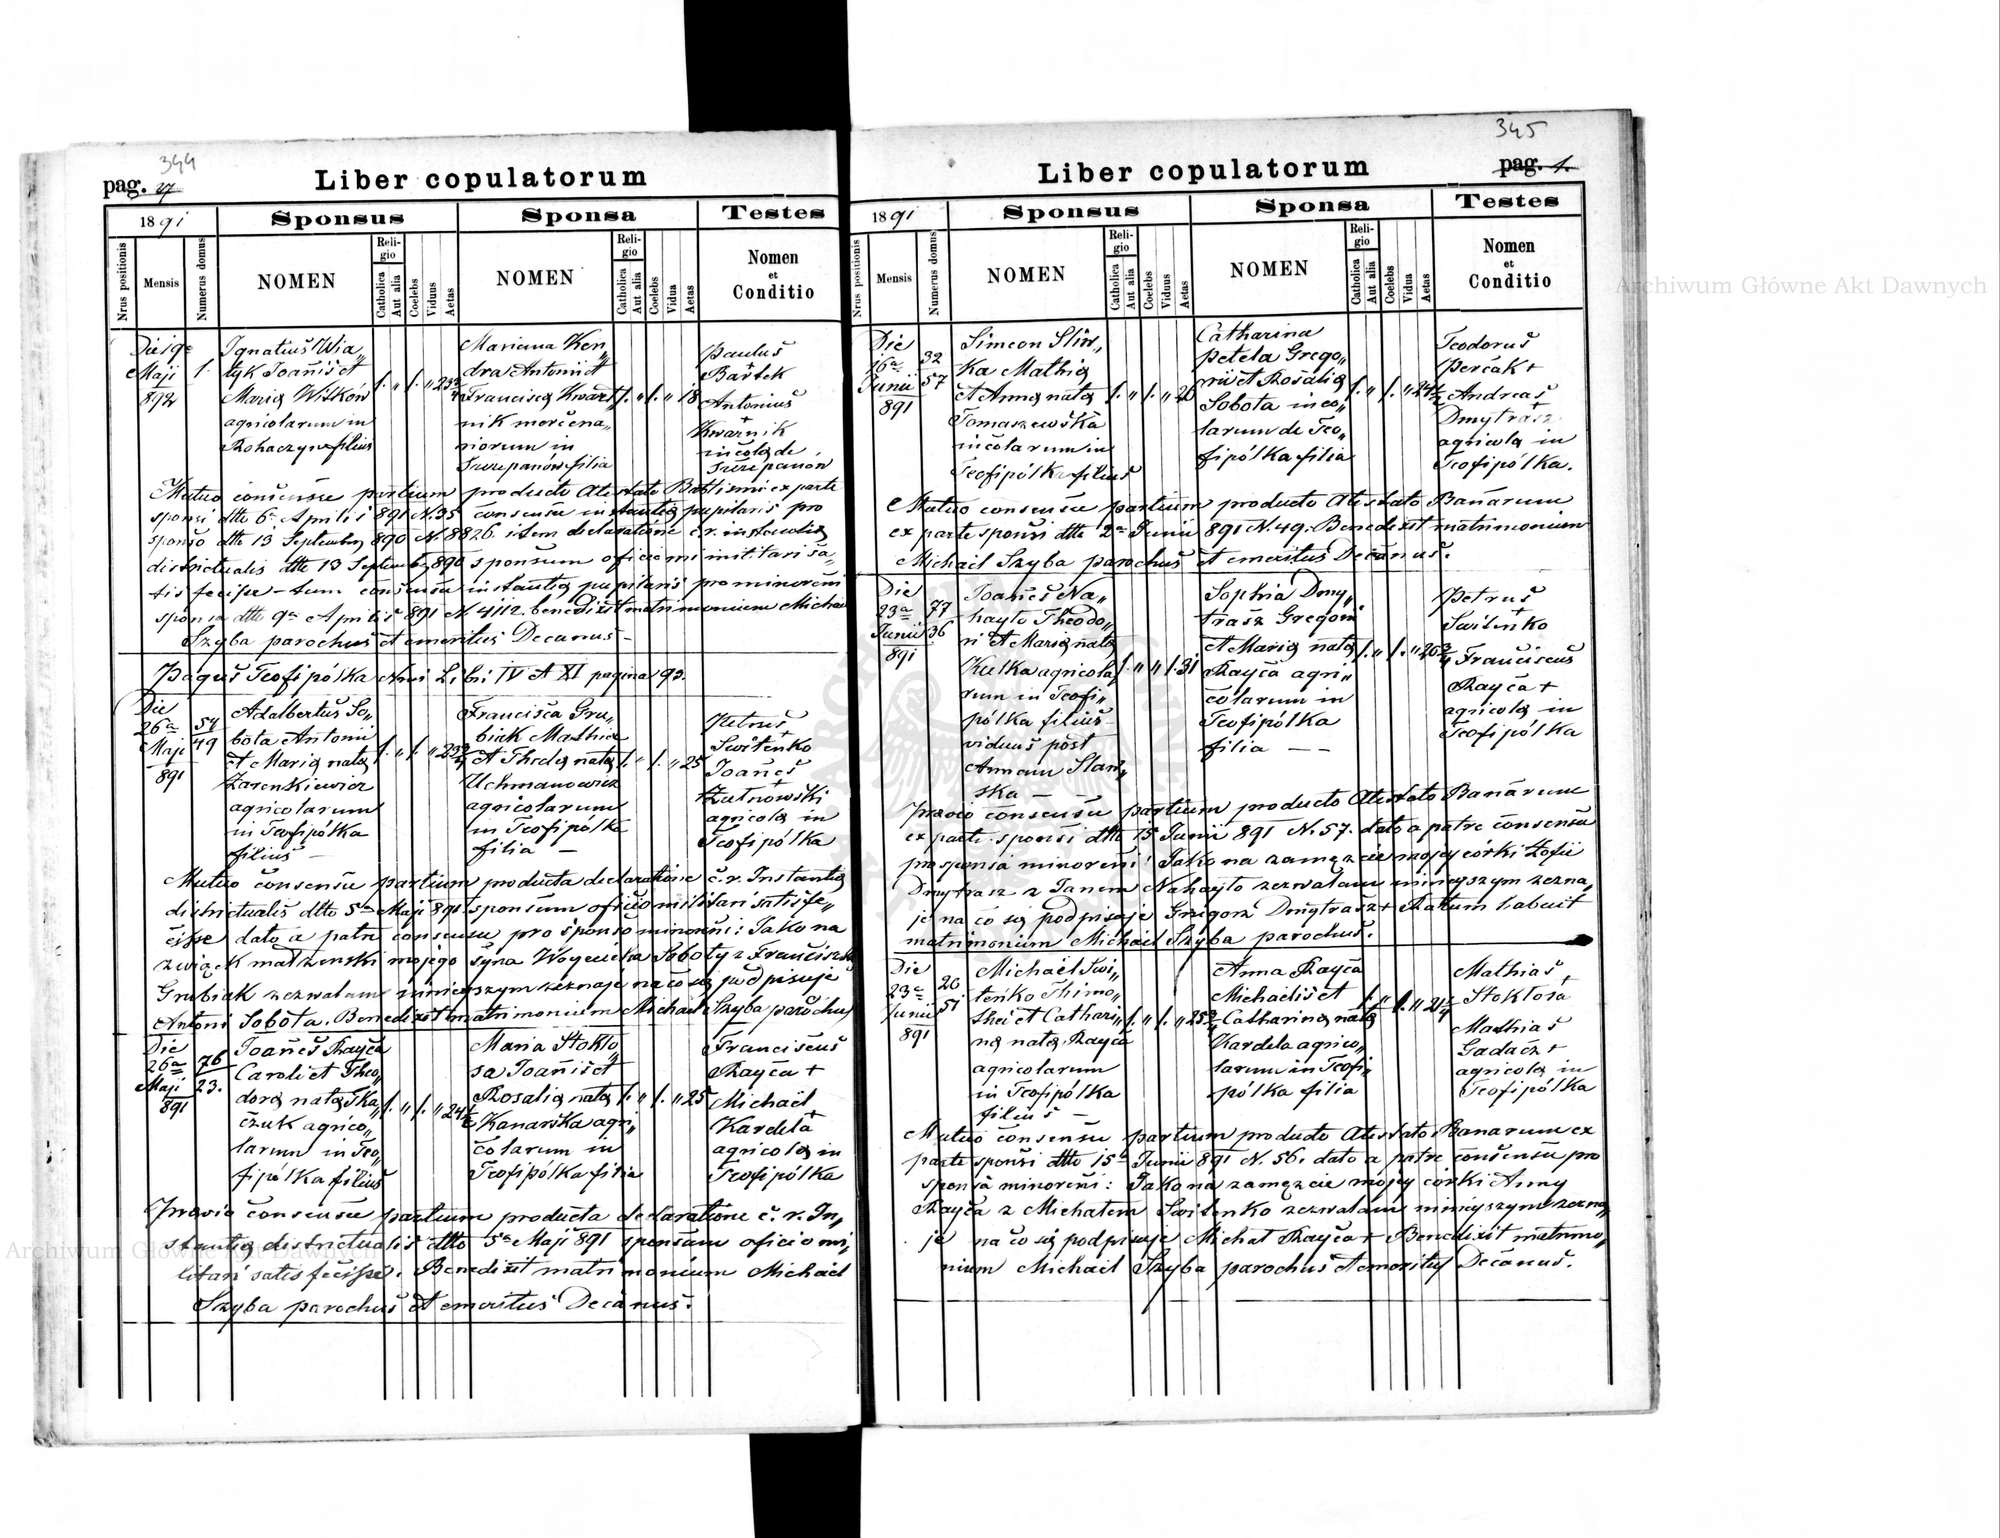 344
pag. 27
Liber copulatorum
1891
Sponsus
Sponsa
Testes
Nrus positionis
Mensis
Numerus domus
NOMEN
Religio
Catholica
Aut alia
Coelebs
Viduus
Aetas
NOMEN
Religio
Catholica
Aut alia
Coelebs
Vidua
Aetas
Nomen
et
Conditio
Die 19a
Maji
892
1.
Ignatius Wia„
tyk Joanis et
Maria Wisków
agricolarum in
Rohaczyn filius
1. „ 1. „ 23 3/4
Mariana Ken„
dra Antoni et
Francisca Kwart„
nik mercena„
riorum in
Szczepanów filia
1. „ 1. „ 18
Paulus
Bartek
Antonius
+
Kwaznik
incola de
Szczepanów
Mutuo consensu partium producto Atestato Baptismi ex parte
sponsi dtto 6a Aprilis 891 N. 35 consensu instantia pupilaris pro
sponso dtto 13 Septembr 890 N. 8826 item declaratione c.r. instantia
districtualis dtto 13 Septembr 890 sponsum oficio militari sa„
tisfecisse – tum consensu instantia pupilaris pro minoreni
sponsa dtto 9a Aprilis 891 N. 4112. benedixit matrimonium Michael
Szyba parochus et emeritus Decanus –
Pagus Teofipólka Nri Libri IV et XI pagina 92.
Die
26a
Maji
891
54
49
Adalbertus So„
bota Antoni
et Maria nata
Zarenkiewicz
agricolarum
in Teofipólka
filius –
1. „ 1. „ 23 3/4
Francisca Gru„
biak Mathia
et Thecla nata
Uchmanowicz
agricolarum
in Teofipólka
filia –
1. „ 1. „ 25
Petrus
+
Switenko
Joanes
+
Zutnowski
agricola in
Teofipólka
Mutuo consensu partium producta declaratione c.r. Instantia
districtualis dtto 5a Maji 891 sponsum oficio militari satisfe„
cisse dato a patre consensu pro sponso minoreni: Jako na
związek małżenski mojego syna Woyciecha Soboty z Franciszką
Grubiak zezwalam niniejszym zeznaję na co się podpisuje
Antoni Sobota. Benedixit matrimonium Michael Szyba parochus
Die
26a
Maji
891
76
23.
Joanes Rayca
Caroli et Theo„
dora nata Tka„
czuk agrico„
larum in Teo„
fipólka filius
1. „ 1. „ 24 1/2
Maria Stokło„
sa Joanis et
Rosalia nata
Kanarska agri„
colarum in
Teofipólka filia
1. „ 1. „ 25
Franciscus
Rayca +
Michael
+
Kardela
agricola in
Teofipólka
Pravio consensu partium producta declaratione c.r. In„
stantia districtualis dtto 5a Maji 891 sponsum oficio mi„
litari satisfecisse. Benedixit matrimonium Michael
Szyba parochus et emeritus Decanus.
345
pag. 1.
Liber copulatorum
1891
Sponsus
Sponsa
Testes
Nrus positionis
Mensis
Numerus domus
NOMEN
Religio
Catholica
Aut alia
Coelebs
Viduus
Aetas
NOMEN
Religio
Catholica
Aut alia
Coelebs
Vidua
Aetas
Nomen
et
Conditio
Die
16a
Junii
891
32
57
Simeon Sliw„
ka Mathia
et Anna nata
Tomaszewska
incolarum in
Teofipólka filius
1. „ 1. „ 26
Catharina
Petela Grego„
rii et Rosalia
Sobota inco„
larum de Teo„
fipólka filia
1. „ 1. „ 24 1/2
Teodorus
Percak +
Andreas
+
Dmytrasz
agricola in
Teofipólka.
Mutuo consensu partium producto Atestato Banarum
ex parte sponsi dtto 2a Junii 891 N. 49. Benedixit matrimonium
Michael Szyba parochus et emeritus Decanus.
Die
23a
Junii
891
77
36
Joanes Na„
hayło Theodo„
ri et Maria nata
Kulka agricola„
rum in Teofi„
pólka filius –
viduus post
Annam Slaw„
ska –
1. „ „ 1. 31
Sophia Dmy„
trasz Gregorii
et Maria nata
Rayca agri„
colarum in
Teofipólka
filia – –
1. „ 1. „ 20 3/4
Petrus
+
Switenko
Franciscus
Rayca +
agricola in
Teofipólka
Pravio consensu partium producto Atestato Banarum
ex parte sponsi dtto 15 Junii 891 N. 57. dato a patre consensu
pro sponsa minoreni: Jako na zamęzcie mojej córki Zofii
Dmytrasz z Janem Nahayło zezwalam niniejszym zezna„
je na co się podpisuje Grzegorz Dmytrasz + Ratum habuit
matrimonium Michael Szyba parochus.
Die
23a
Junii
891
20
51
Michael Swi„
tenko Thimo„
thei et Cathari„
na nata Rayca
agricolarum
in Teofipólka
filius –
1. „ 1. „ 25 3/4
Anna Rayca
Michaelis et
Catharina nata
Kardela agrico„
larum in Teofi„
pólka filia
1. „ 1. „ 21 1/4
Mathias
+
Stoktosa
Mathias
Gadacz +
agricola in
Teofipólka
Mutuo consensu partium producto Atestato Banarum ex
parte sponsi dtto 15a Junii 891 N. 56. dato a patre consensu pro
sponsa minoreni: Jako na zamęzcie mojey córki Anny
Rayca z Michałem Switenko zezwalam niniejszym zezna„
je na co się podpisuje Michał Rayca + Benedixit matrimo„
nium Michael Szyba parochus et emeritus Decanus.
Archiwum Główne Akt Dawnych
Archiwum Główne Akt Dawnych